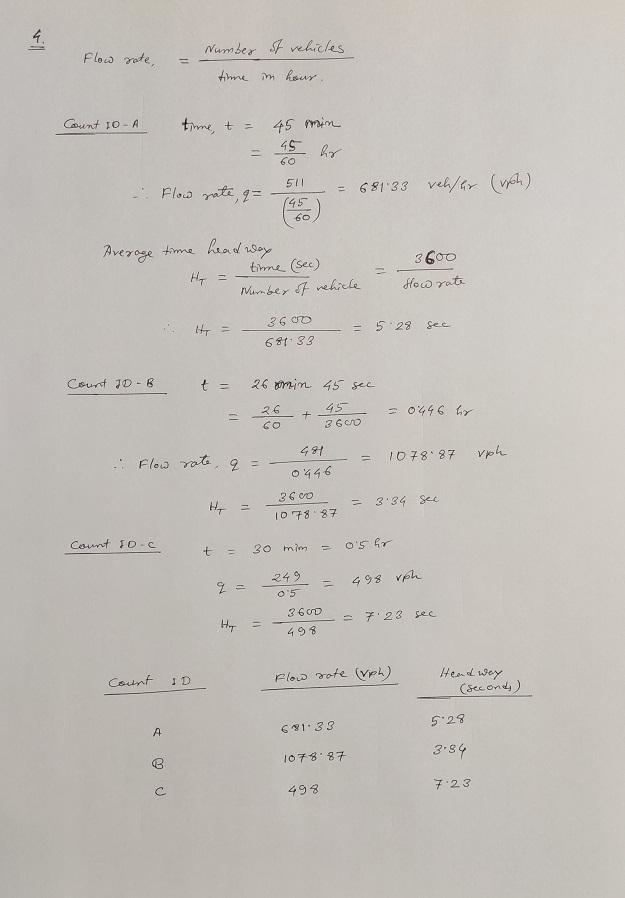 4.
Flow rate, = Number of vehicles / time in hour.
Count ID - A time, t = 45 min
= 45/60 hr
∴ Flow rate, q = 511 / (45/60) = 681.33 veh/hr (vph)
Average time headway
H_T = time (sec) / Number of vehicle = 3600 / flow rate
∴ H_T = 3600 / 681.33 = 5.28 sec
Count ID - B t = 26 min 45 sec
= 26/60 + 45/3600 = 0.446 hr
∴ Flow rate, q = 481 / 0.446 = 1078.87 vph
H_T = 3600 / 1078.87 = 3.34 sec
Count ID - C t = 30 min = 0.5 hr
q = 249 / 0.5 = 498 vph
H_T = 3600 / 498 = 7.23 sec
Count ID Flow rate (vph) Headway (seconds)
A 681.33 5.28
B 1078.87 3.34
C 498 7.23